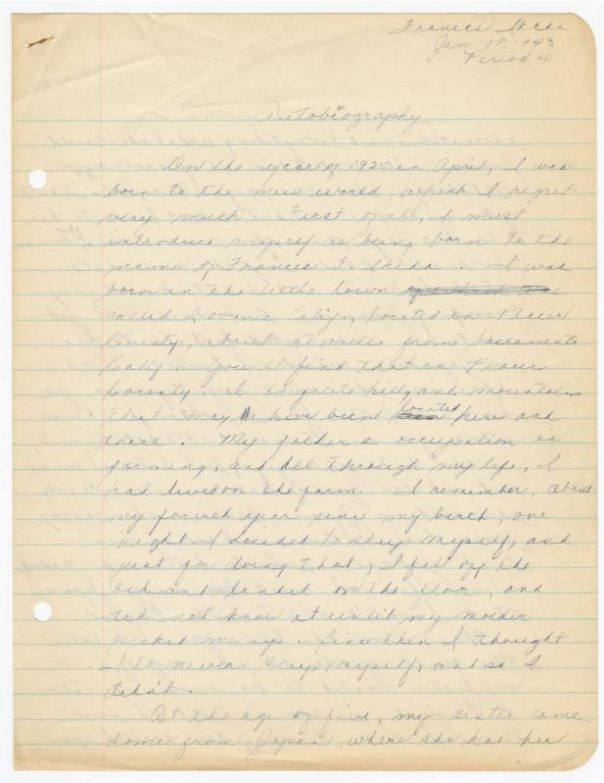 Frances Ikeda
Jan 18, 1943
Period 4
Autobiography
On the year of 1925 in April, I was
born to the new world, which I regret
very much. First of all, I must
introduce myself as being born to the
name of Frances F. Ikeda. I was
born in the little town
called Loomis Calif, located in Placer
County, about miles from Sacramento
Calif. You'll find that in Placer
County. It is quite hilly and mountains
that may have been located here and
there. My father's occupation is
farming, and all through my life, I
had lived on the farm. I remember, about
my fourth year since my birth, one
night I decided to sleep myself, and
just for doing that, I fell off the
bed and landed on the floor, and
did not know it until my mother
picked me up. Since then I thought
I'll never sleep myself, and so I
didn't.
At the age of five, my sister came
home from Japan, where she had her